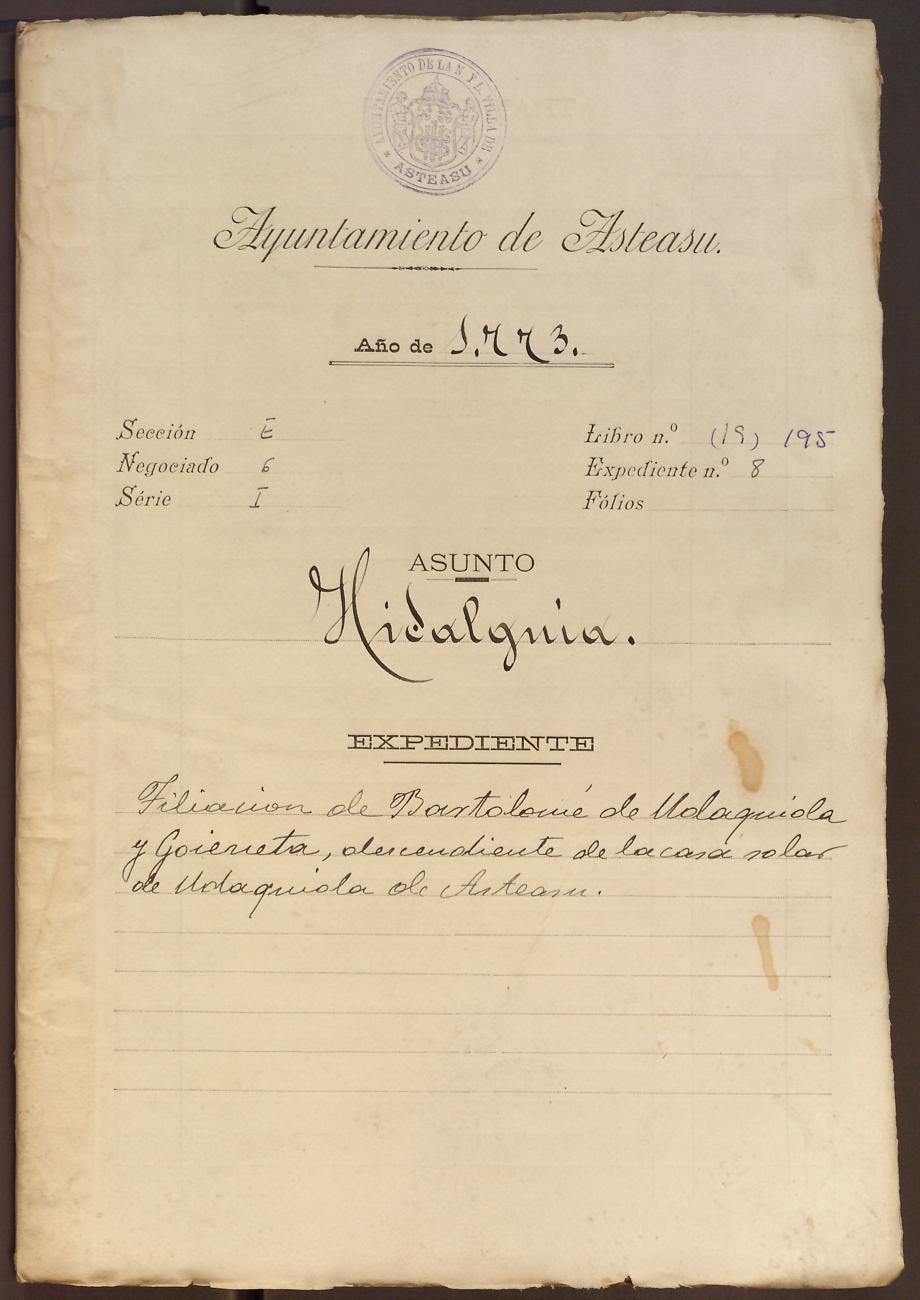 AYUNTAMIENTO DE LA N. Y L. VILLA DE
* ASTEASU *
Ayuntamiento de Asteasu.
Año de 1.773.
Sección E
Negociado 6
Série I
Libro n.º (19) 195
Expediente n.º 8
Fólios
ASUNTO
Hidalguia.
EXPEDIENTE
Filiacion de Bartolomé de Udaquiola
y Goieneta, descendiente de la casa solar
de Udaquiola de Asteasu.